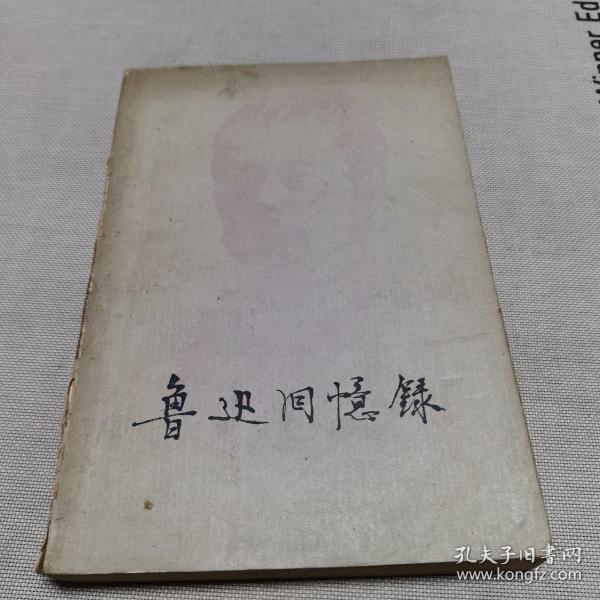 Winner Ed
魯迅回憶錄
孔夫子旧书网
www.kongfz.com